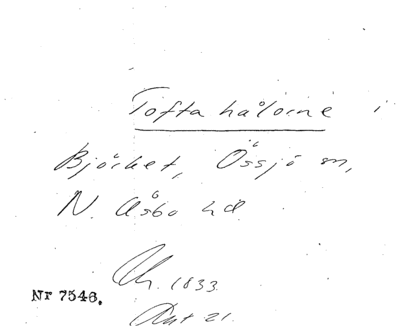 Tofta hålorne i
Björket, Össjö sn,
N. Åsbo hd
Ch. 1833.
Akt 21.
Nr 7546.